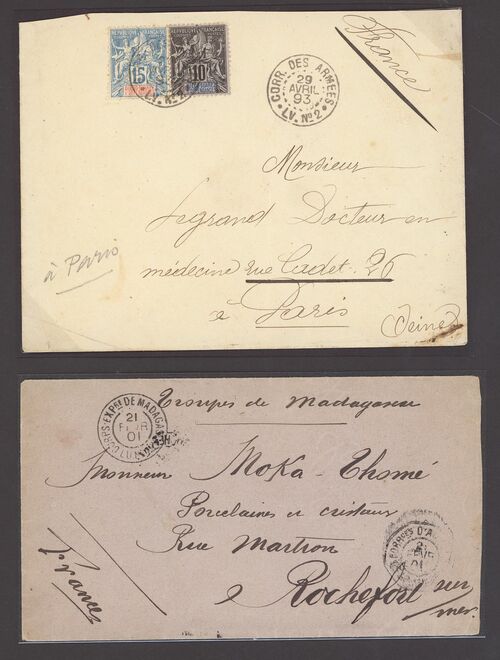 RÉPUBLIQUE FRANÇAISE
15
RÉPUBLIQUE FRANÇAISE
10
CORR. DES ARMÉES
29
AVRIL
93
LV. Nº 2
France
Monsieur
Legrand Docteur en
médecine rue Cadet. 26
à Paris
(Seine)
à Paris
CORPS EXPRE DE MADAGAS
21
01
Troupes de Madagascar
Monsieur Moka-Thomé
Porcelaines et cristaux
Rue Martron
à Rochefort sur
mer
France